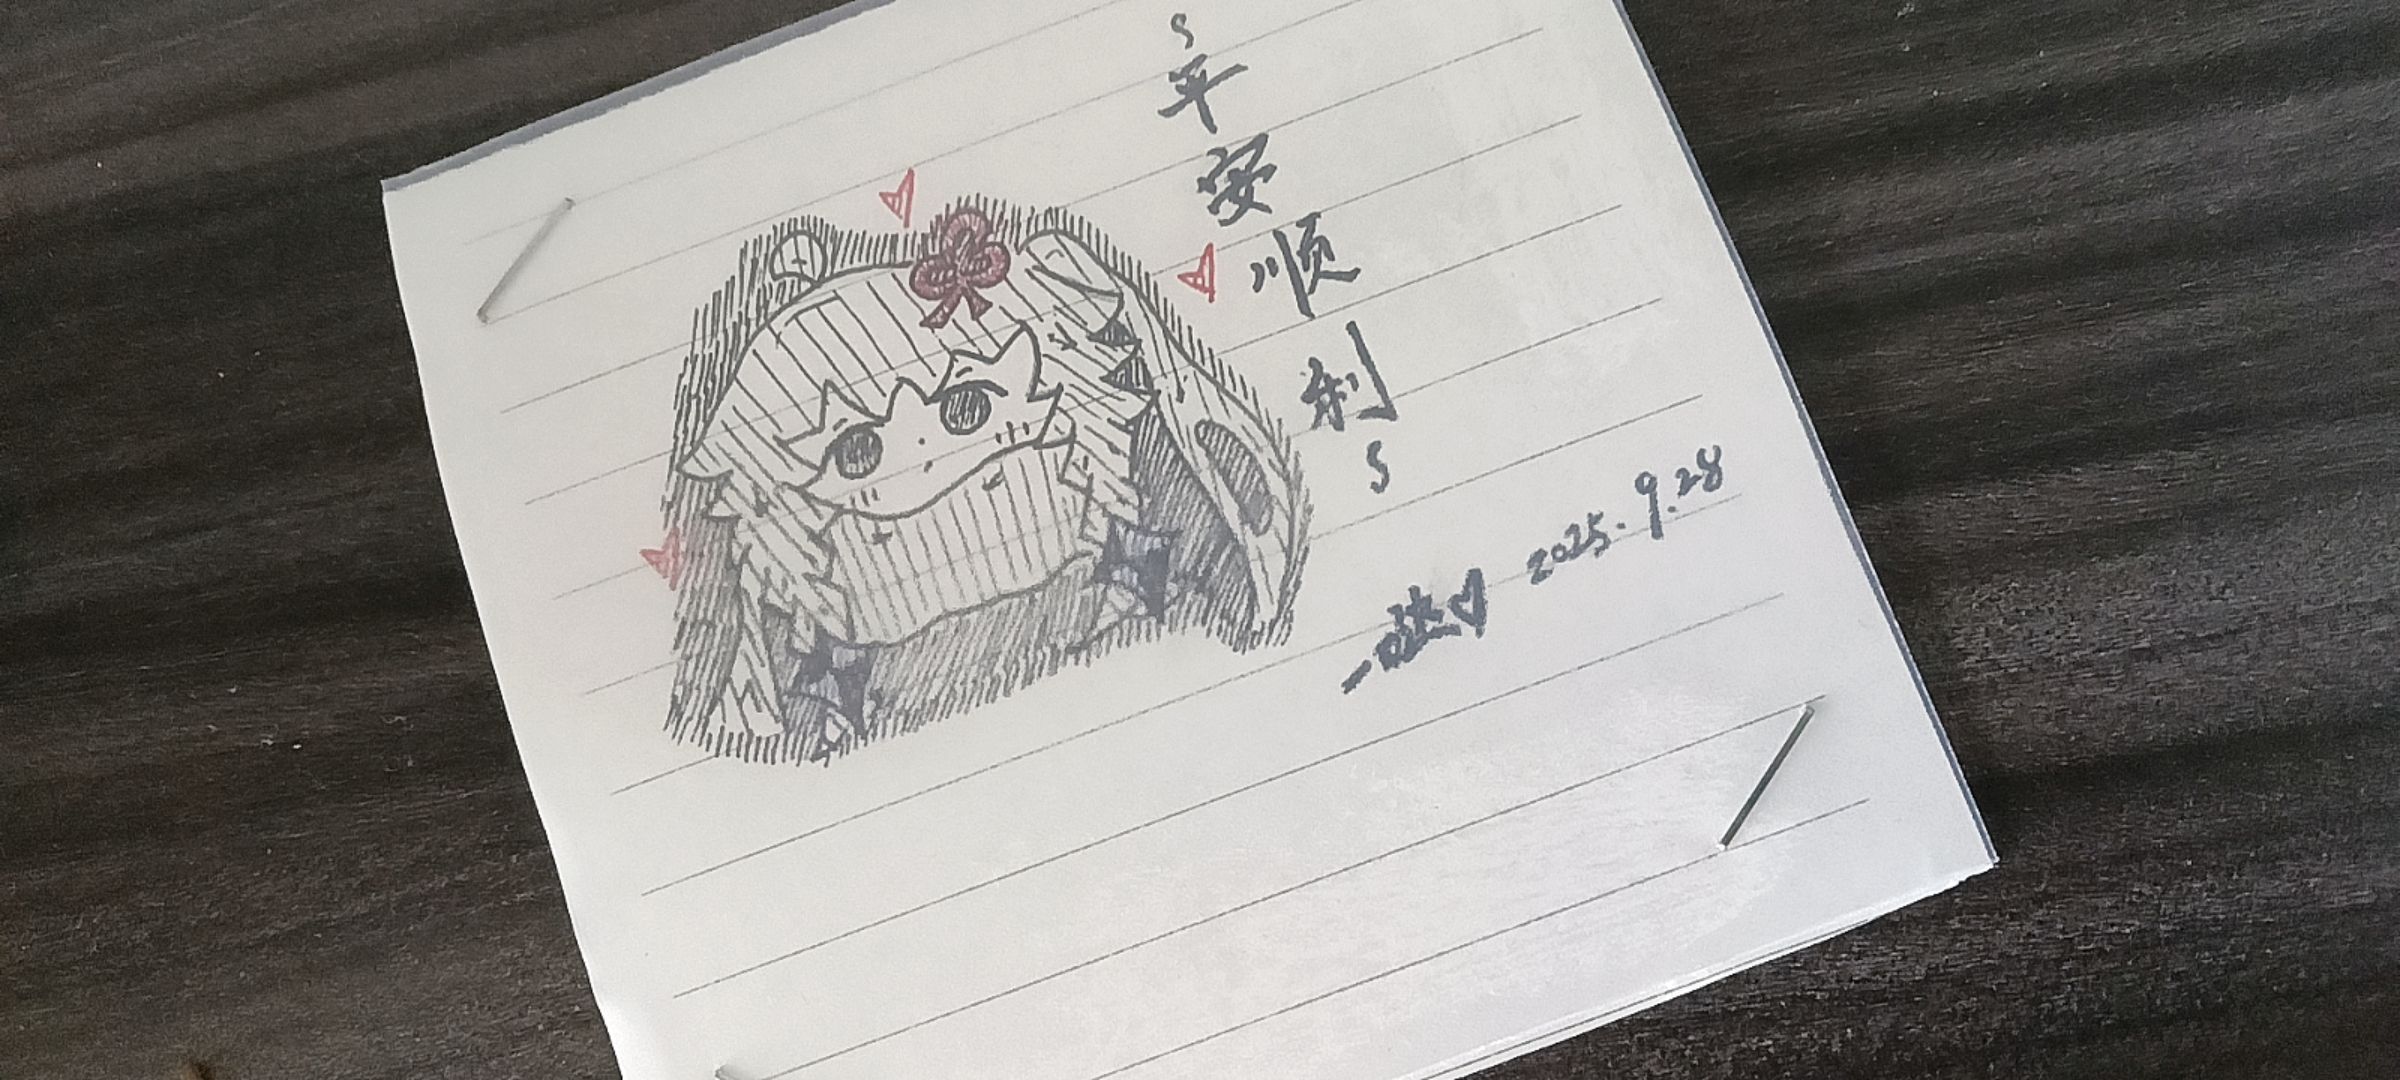 平安顺利
一哒♡ 2025.9.28